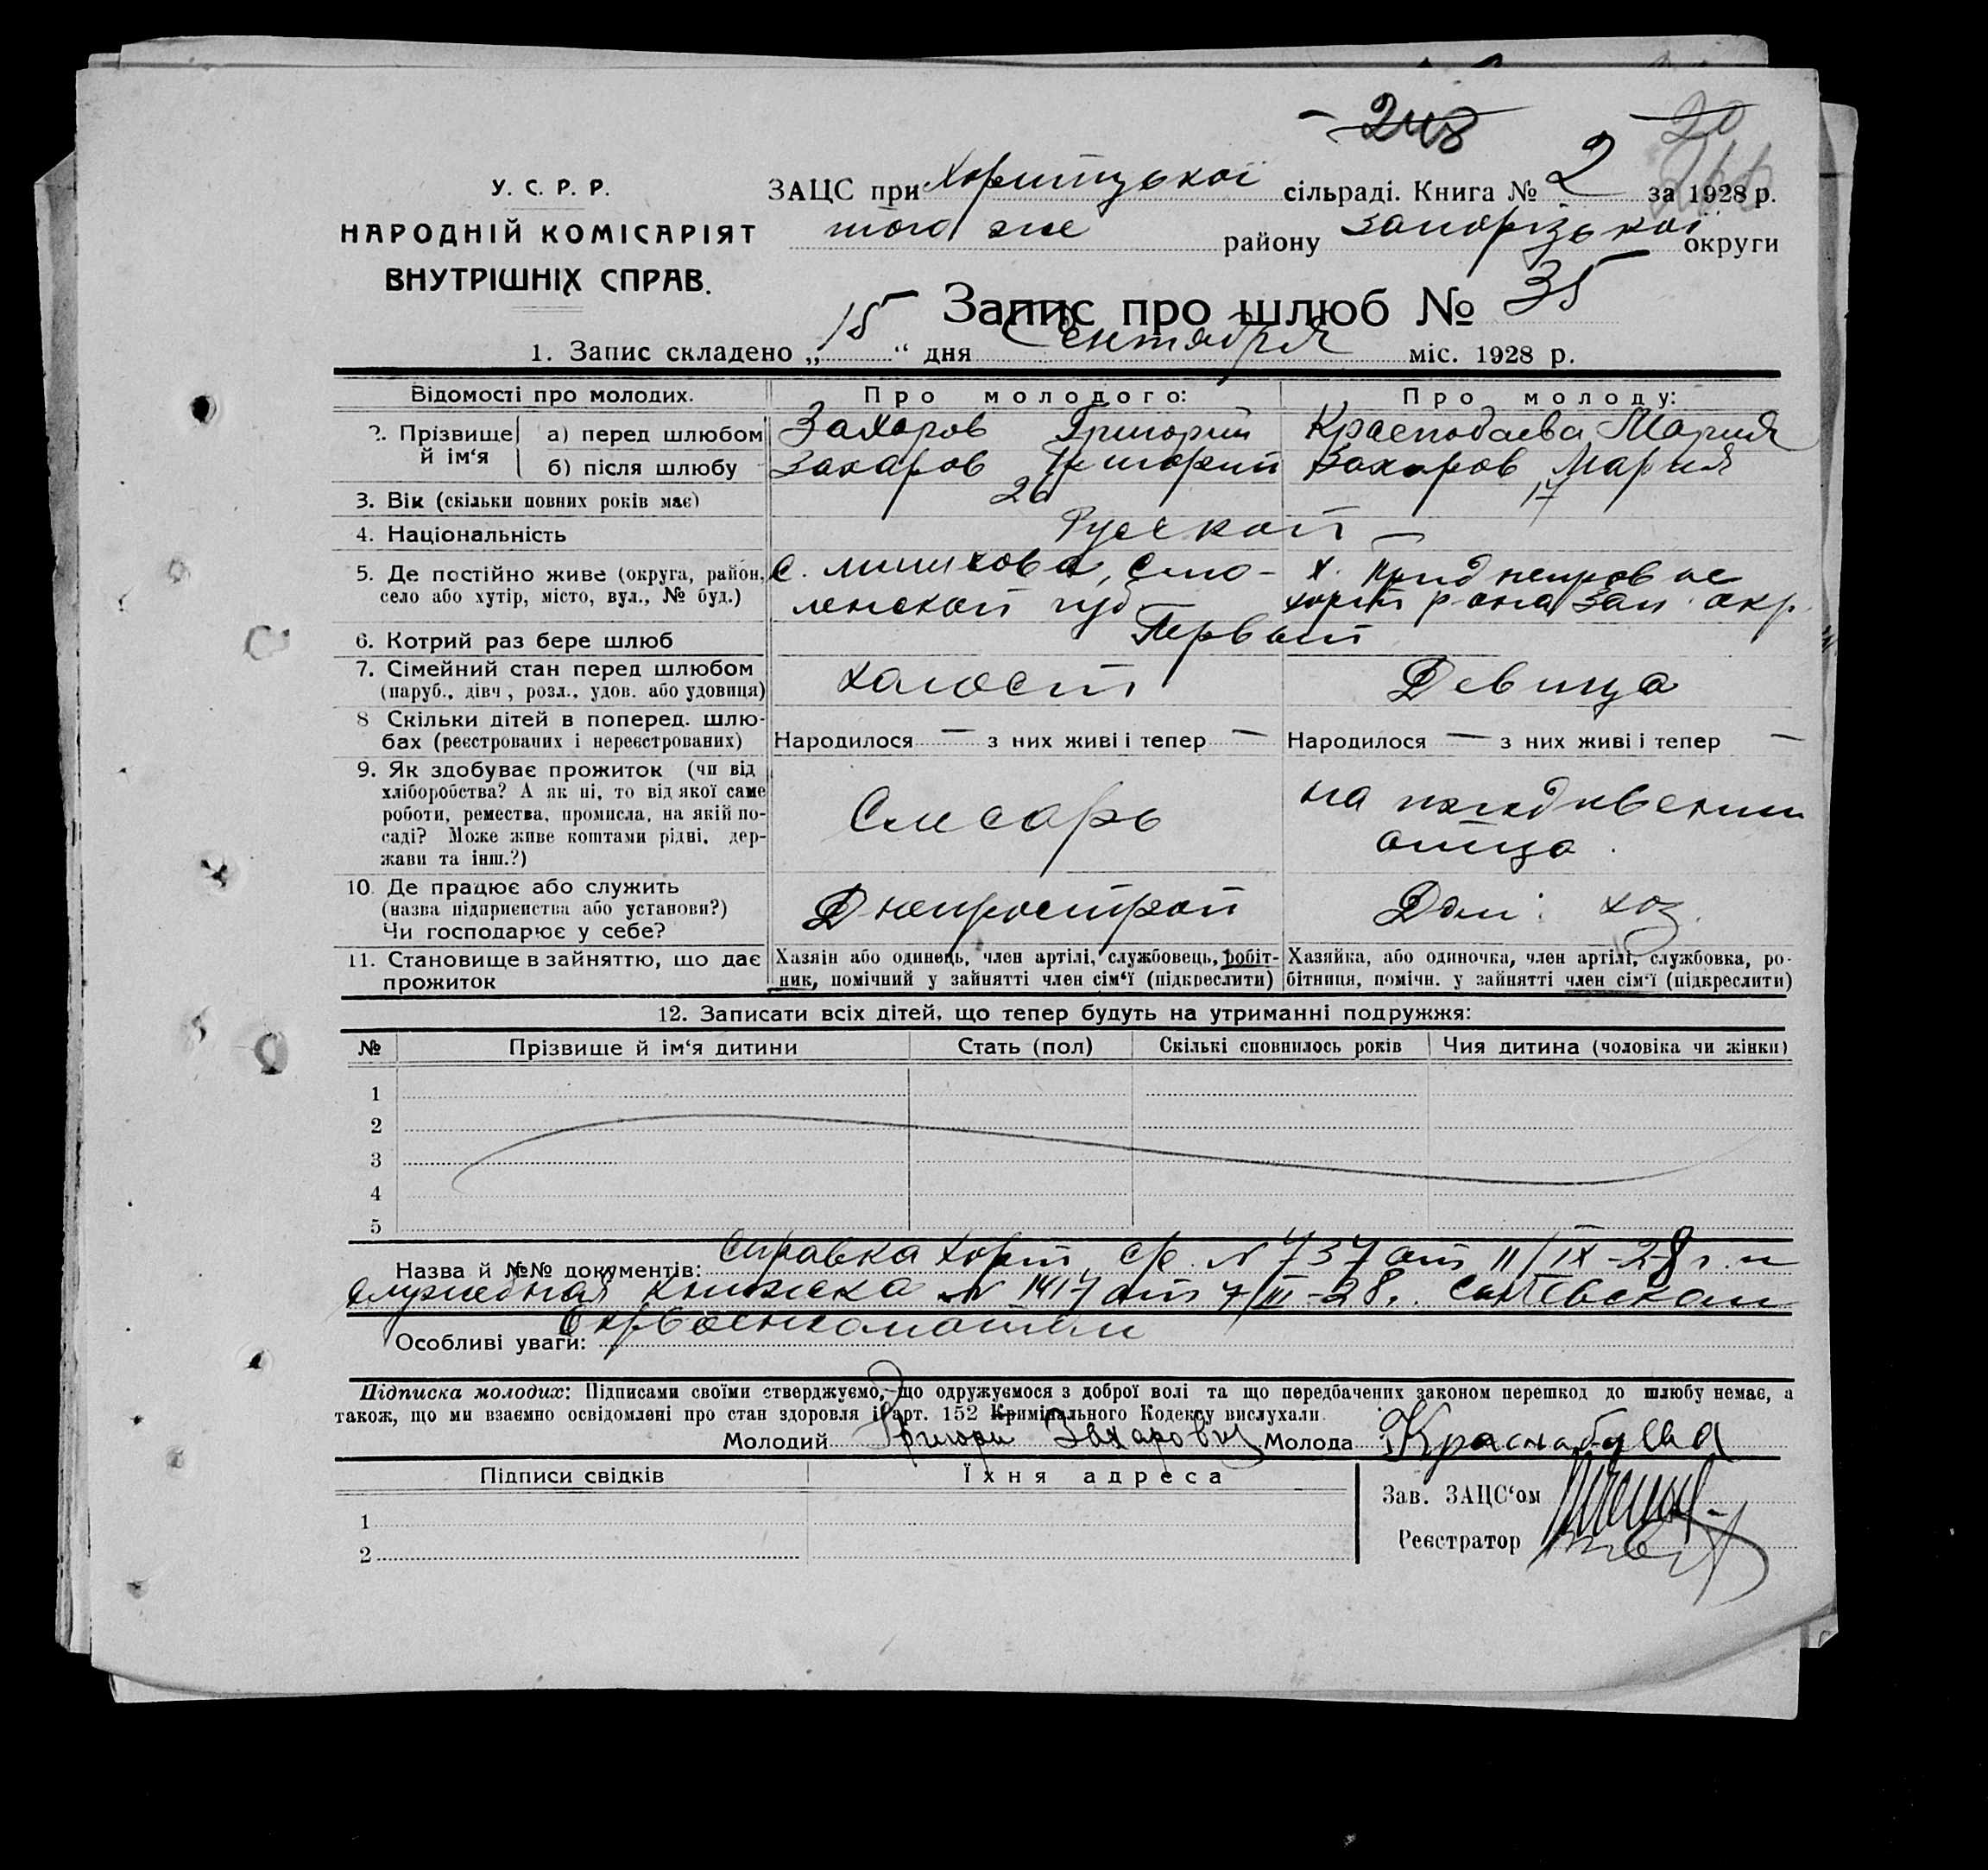 248
20
У. С. Р. Р.
НАРОДНІЙ КОМІСАРІЯТ
ВНУТРІШНІХ СПРАВ.
ЗАЦС при Хортицької сільраді. Книга № 2 за 1928 р.
того же району Запорізької округи
Запис про шлюб № 35
1. Запис складено „15“ дня Сентября міс. 1928 р.
Відомості про молодих. Про молодого: Про молоду:
2. Прізвище й ім‘я а) перед шлюбом Захаров Григорий Мария
б) після шлюбу Захаров Григорий Захаров Мария
3. Вік (скільки повних років має) 26 17
4. Національність Русской
5. Де постійно живе (округа, район, село або хутір, місто, вул., № буд.) с. Смо-
ленской губ х. Хорт р-она Зап. окр.
6. Котрий раз бере шлюб Первый
7. Сімейний стан перед шлюбом Холост Девица
(паруб., дівч., розл., удов. або удовиця)
8 Скільки дітей в поперед. шлю-
бах (реєстрованих і нереєстрованих) Народилося — з них живі і тепер — Народилося — з них живі і тепер —
9. Як здобуває прожиток (чи від
хліборобства? А як ні, то від якої саме
роботи, ремества, промисла, на якій по-
саді? Може живе коштами рідні, дер-
жави та інш.?)
Слесарь
на иждивении
отца.
10. Де працює або служить
(назва підприєнства або установи?)
Чи господарює у себе?
Днепрострой Дом. хоз.
11. Становище в зайняттю, що дає
прожиток
Хазяїн або одинець, член артілі, службовець, робіт-
ник, помічний у зайнятті член сім‘ї (підкреслити)
Хазяйка, або одиночка, член артілі, службовка, ро-
бітниця, помічн. у зайнятті член сім‘ї (підкреслити)
12. Записати всіх дітей, що тепер будуть на утриманні подружжя:
№ Прізвище й ім‘я дитини Стать (пол) Скількі сповнилось років Чия дитина (чоловіка чи жінки)
1
2
3
4
5
Назва й №№ документів: Справка Хорт. с/с N 737 от 11/IX-28 г. и
служебная книжка N 1417 от 7/III-28.
Окрвоенкоматом
Особливі уваги:
Підписка молодих: Підписами своїми стверджуємо, що одружуємося з доброї волі та що передбачених законом перешкод до шлюбу немає, а
також, що ми взаємно освідомлені про стан здоровля і арт. 152 Кримінального Кодексу вислухали.
Молодий Григори Захаров Молода
Підписи свідків Їхня адреса
Зав. ЗАЦС‘ом
Реєстратор
1
2